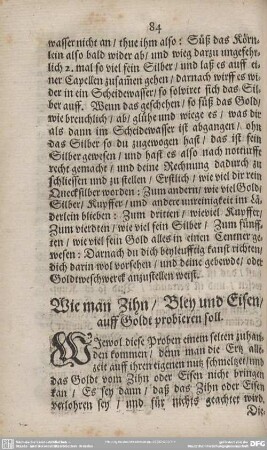 84
wasser nicht an / thue ihm also: Süß das Körn-
lein also bald wider ab / und wieg darzu ungefehr-
lich 2. mal so viel fein Silber / und laß es auff ei-
ner Capellen zusamen gehen / darnach wirff es wi-
der in ein Scheidewasser / so solviret sich das Sil-
ber auff. Wenn das geschehen / so süß das Gold /
wie breuchlich / ab / glühe und wiege es / was dir
als dann im Scheidewasser ist abgangen / ohn
das Silber so du zugewogen hast / das ist fein
Silber gewesen / und hast es also nach notturfft
recht gemacht / und deine Rechnung dadurch zu
schliessen und zu stellen / Erstlich / wie viel dir rein
Quecksilber worden: Zum andern / wie viel Gold /
Silber / Kupffer / und andere unreinigkeit im
derlein blieben: Zum dritten / wieviel Kupffer /
Zum vierdten / wie viel fein Silber / Zum fünff-
ten / wie viel fein Gold alles in einen Centner ge-
wesen: Darnach du dich beyleufftig kanst richten /
dich darin wol vorsehen / und deine gebewde / oder
Goldtweschwerck anzustellen weist.
Wie man Zihn / Bley und Eisen /
auff Goldt probieren soll.
WJewol diese Proben einem selten zuhan-
den kommen / denn man die Ertz alle-
zeit auff ihren eigenen nutz schmeltzet / und
das Goldt vom Zihn oder Eisen nicht bringen
kan / Es sey dann / daß das Zihn oder Eisen
verlohren sey / und für nichts geachtet wird.
Die